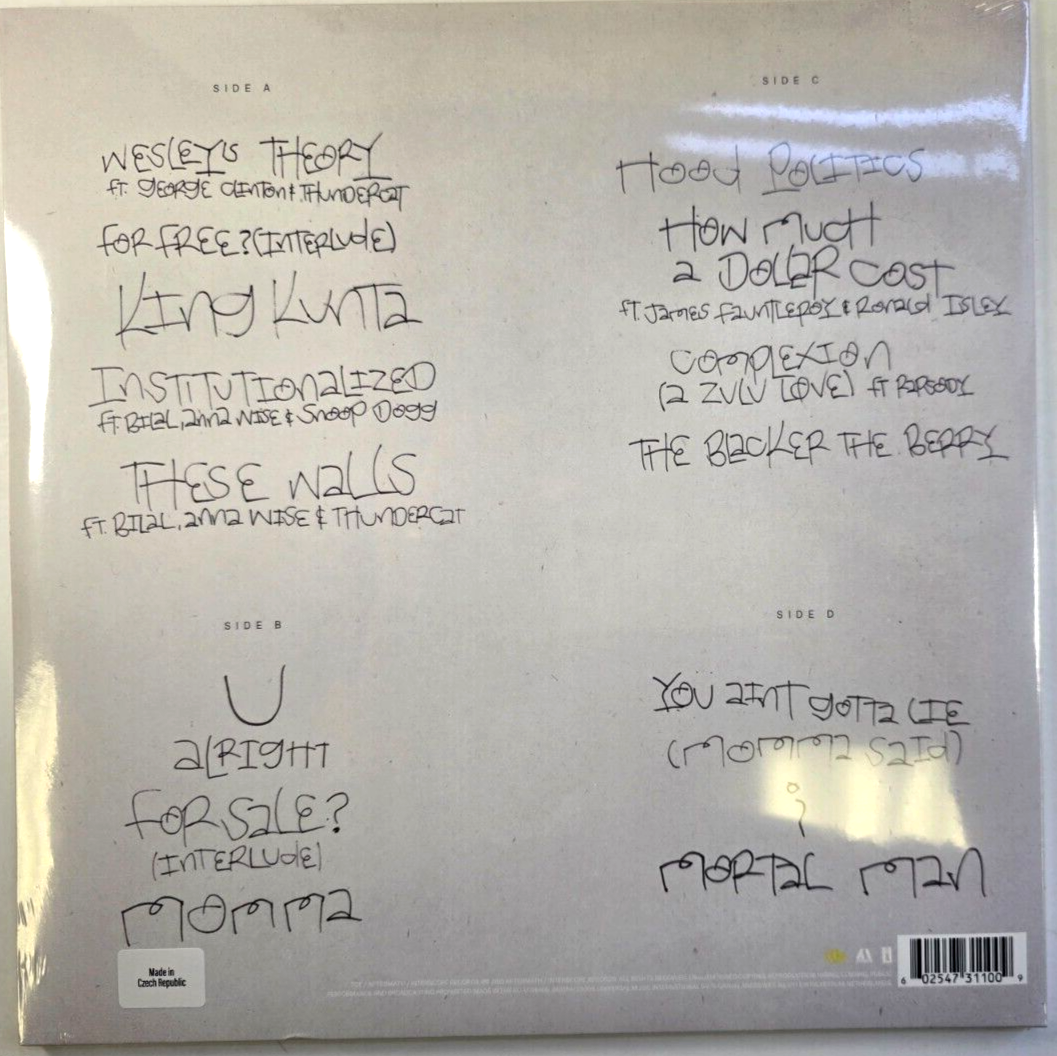 SIDE A
WESLEY'S THEORY
FT. GEORGE CLINTON & THUNDERCAT
FOR FREE? (INTERLUDE)
KING KUNTA
INSTITUTIONALIZED
FT. BILAL, ANNA WISE & SNOOP DOGG
THESE WALLS
FT. BILAL, ANNA WISE & THUNDERCAT
SIDE B
U
ALRIGHT
FOR SALE?
(INTERLUDE)
MOMMA
Made in
Czech Republic
SIDE C
HOOD POLITICS
HOW MUCH
A DOLLAR COST
FT. JAMES FAUNTLEROY & RONALD ISLEY
COMPLEXION
(A ZULU LOVE) FT RAPSODY
THE BLACKER THE BERRY
SIDE D
YOU AINT GOTTA LIE
(MOMMA SAID)
i
MORTAL MAN
6 02547 31100 9